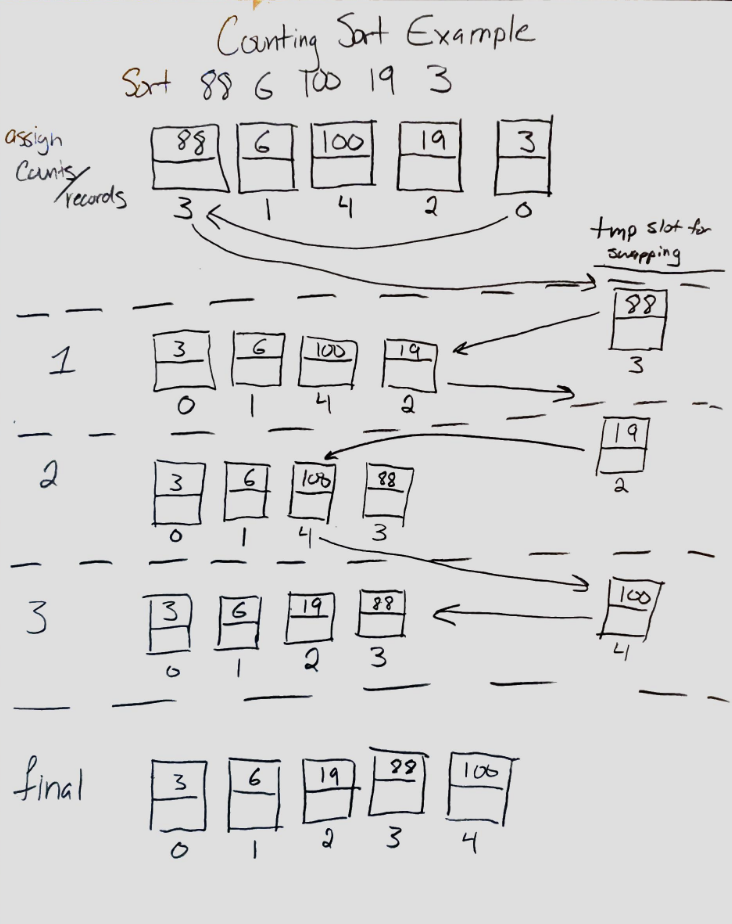 Counting Sort Example
Sort 88 6 100 19 3
assign
Counts/
records
88 6 100 19 3
3 1 4 2 0
tmp slot for
swapping
88
3
1
3 6 100 19
0 1 4 2
19
2
2
3 6 100 88
0 1 4 3
100
4
3
3 6 19 88
0 1 2 3
final
3 6 19 88 100
0 1 2 3 4